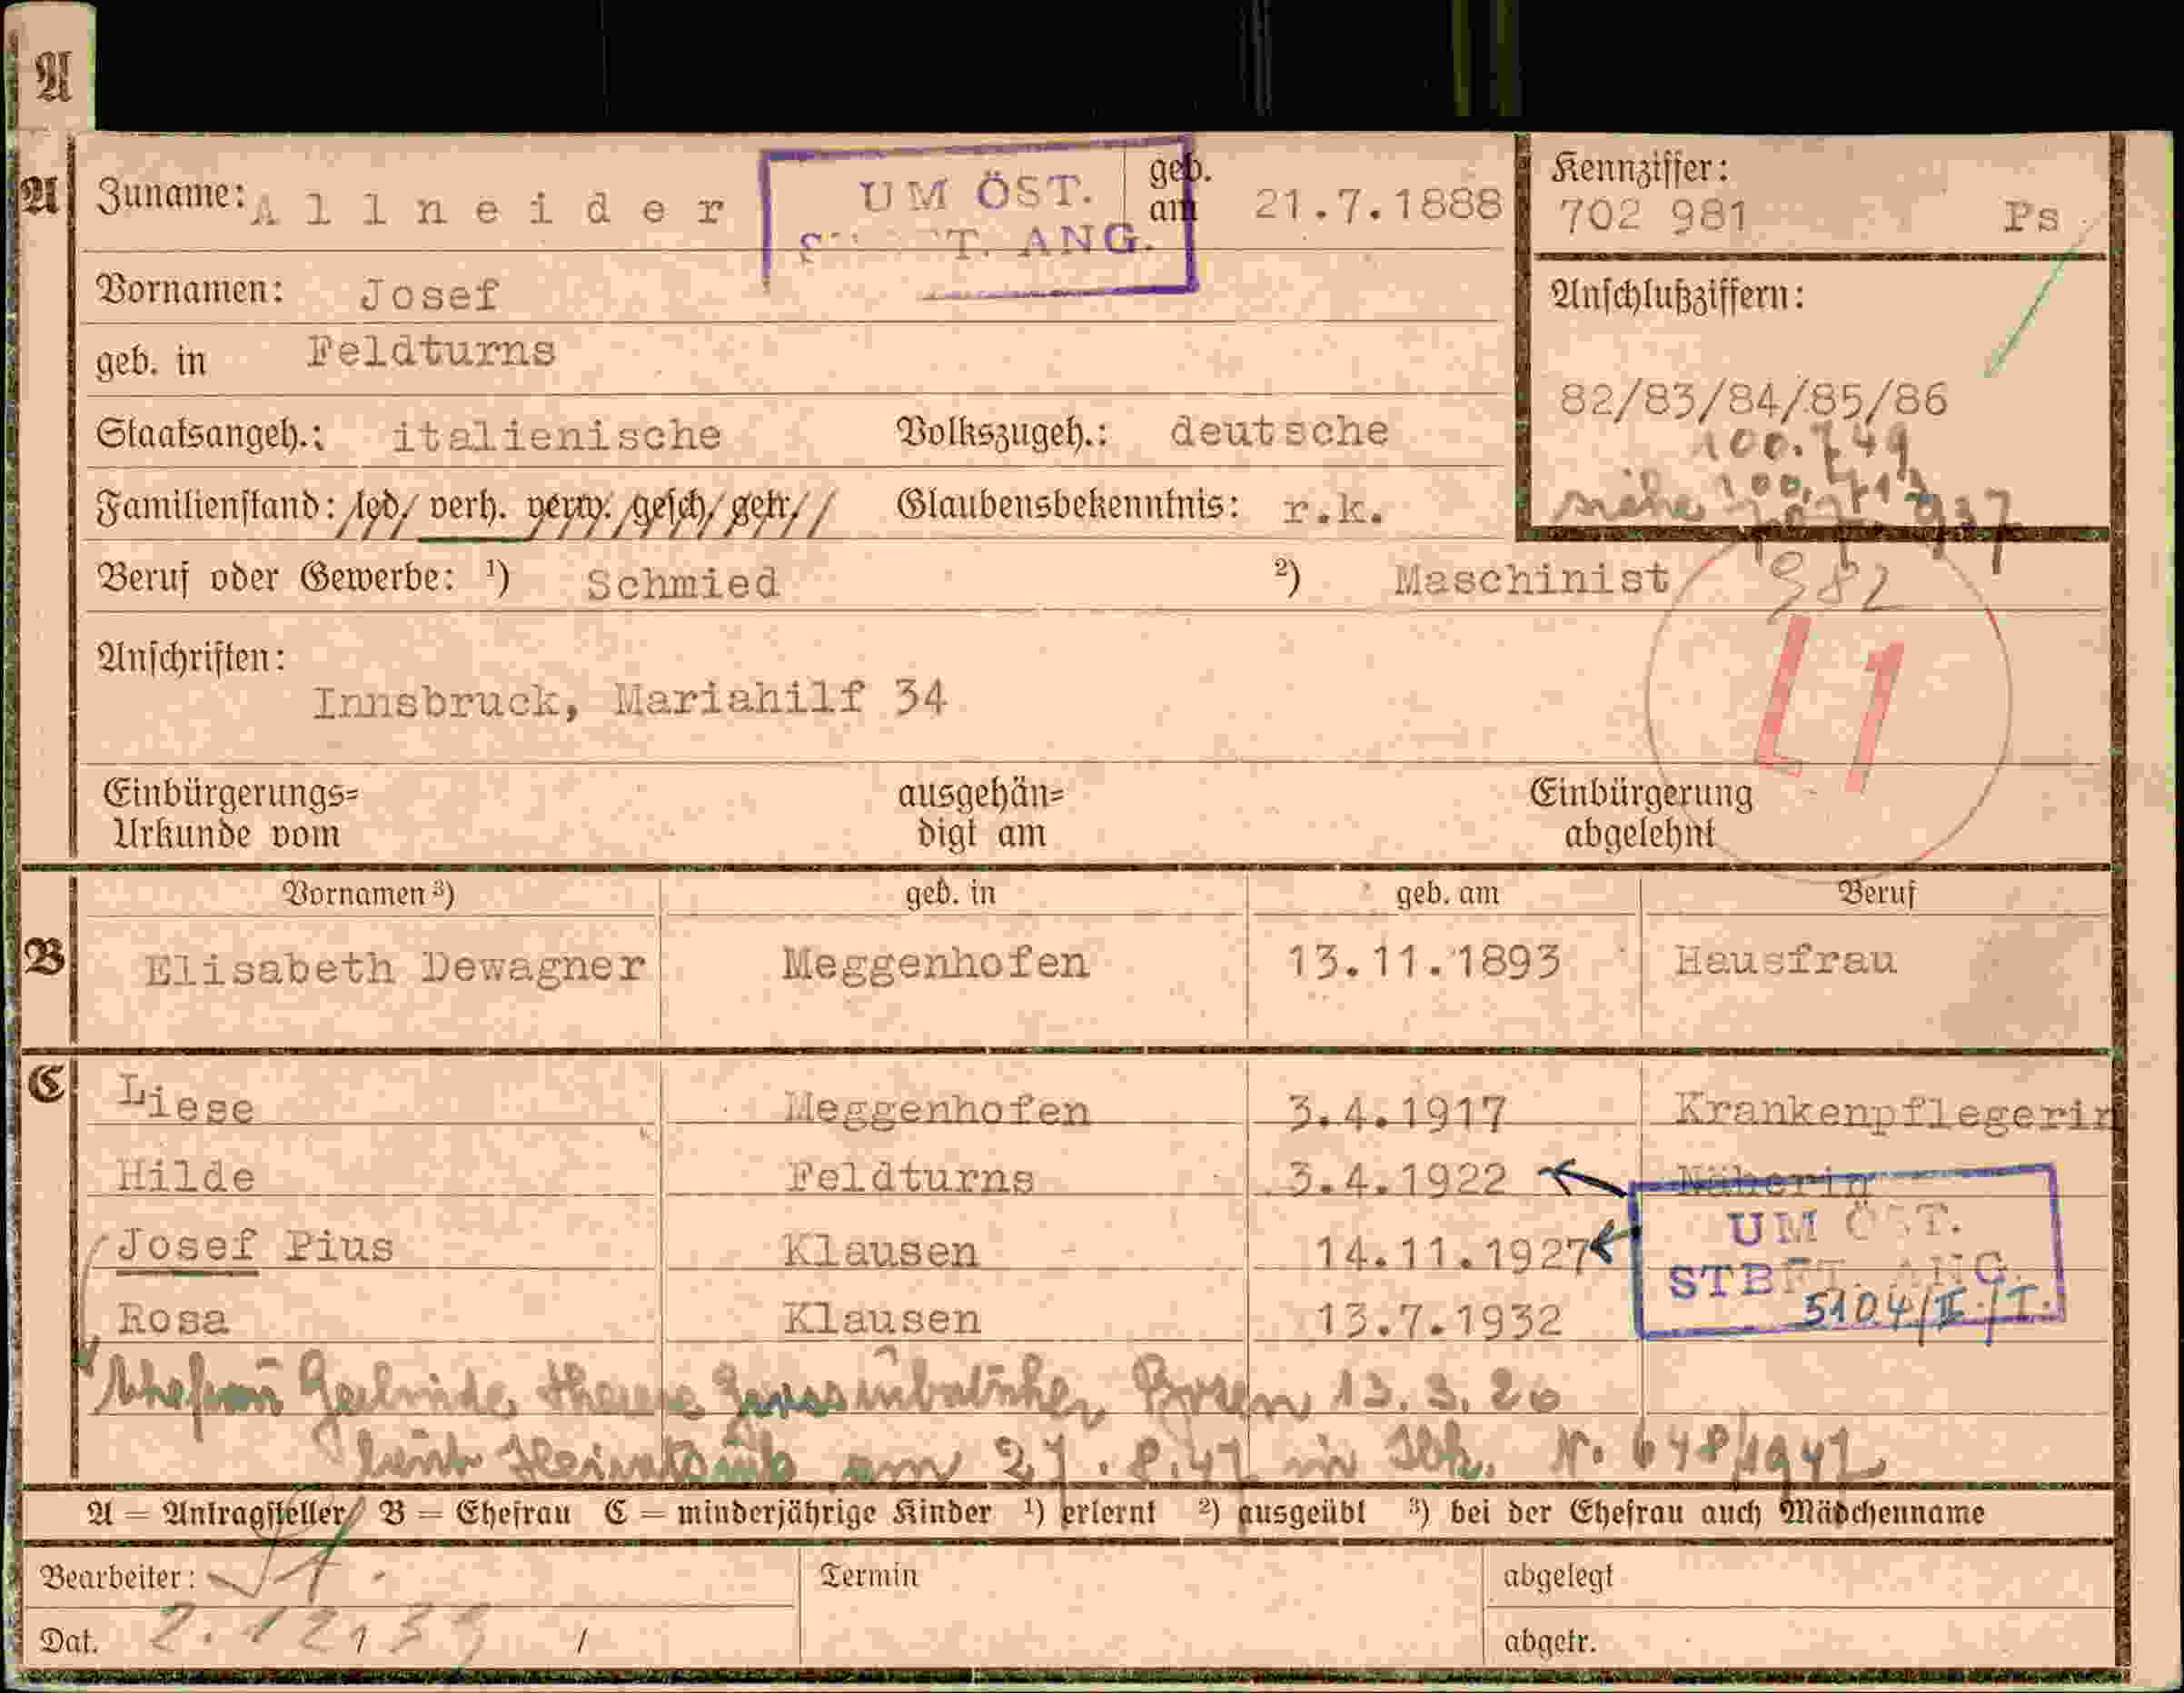 A
A Zuname: A l l n e i d e r UM ÖST. geb. am 21.7.1888
T. ANG.
Kennziffer:
702 981 Ps
Vornamen: Josef
Anschlußziffern:
geb. in Feldturns
82/83/84/85/86
Staatsangeh.: italienische Volkszugeh.: deutsche
100.749
Familienstand: led/ verh. verw. gesch/ getr. Glaubensbekenntnis: r.k.
siehe
Beruf oder Gewerbe: ¹) Schmied ²) Maschinist
982
Anschriften:
Innsbruck, Mariahilf 34
L1
Einbürgerungs=
Urkunde vom
ausgehän=
digt am
Einbürgerung
abgelehnt
Vornamen ³) geb. in geb. am Beruf
B Elisabeth Dewagner Meggenhofen 13.11.1893 Hausfrau
C Liese Meggenhofen 3.4.1917 Krankenpflegerin
Hilde Feldturns 3.4.1922 Näherin
Josef Pius Klausen 14.11.1927
UM ÖST.
STBFT. ANG.
5104/II./I.
Rosa Klausen 13.7.1932
Ehefrau Gerlinde Bozen 13.3.26
laut Heiratsurk am 27.8.47 in Ibk. N. 648/1947
A = Antragsteller B = Ehefrau C = minderjährige Kinder ¹) erlernt ²) ausgeübt ³) bei der Ehefrau auch Mädchenname
Bearbeiter:
Termin
abgelegt
Dat. 2.12.39
abgetr.